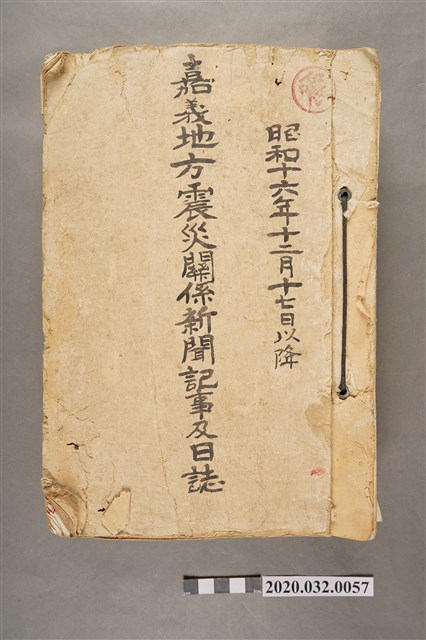 昭和十六年十二月十七日以降
嘉義地方震災關係新聞記事及日誌
2020.032.0057